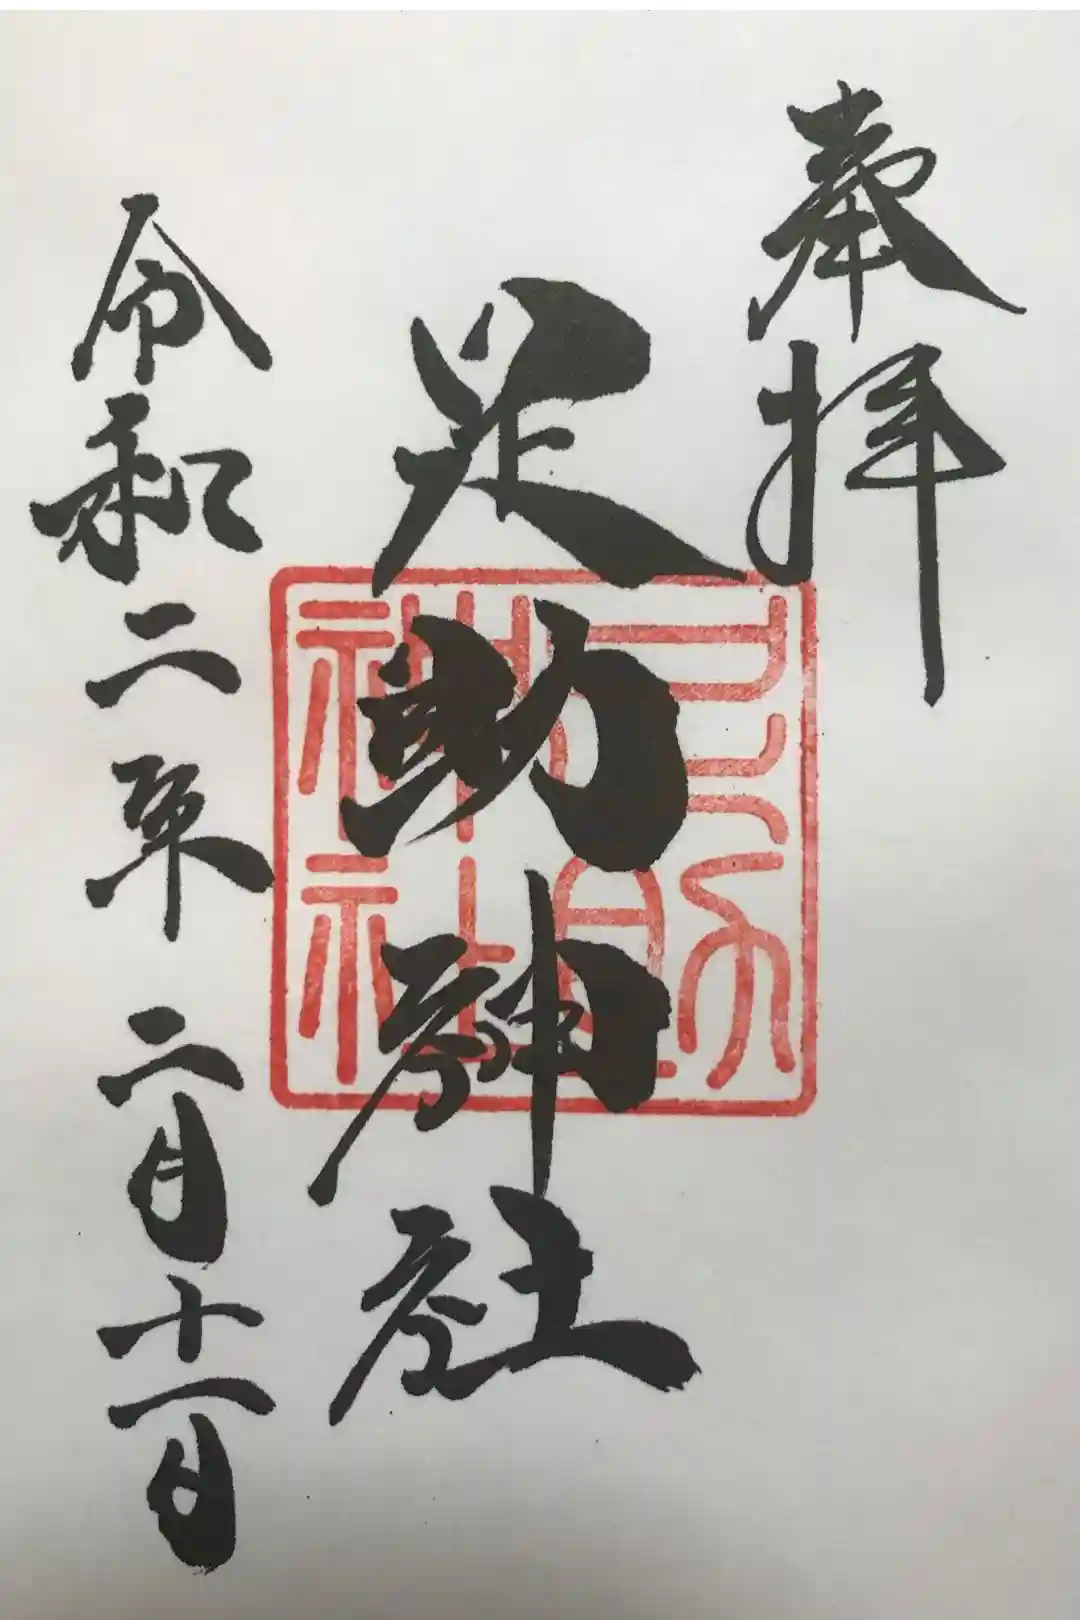 奉拝
足助神社
足助神社
令和二年 二月十一日